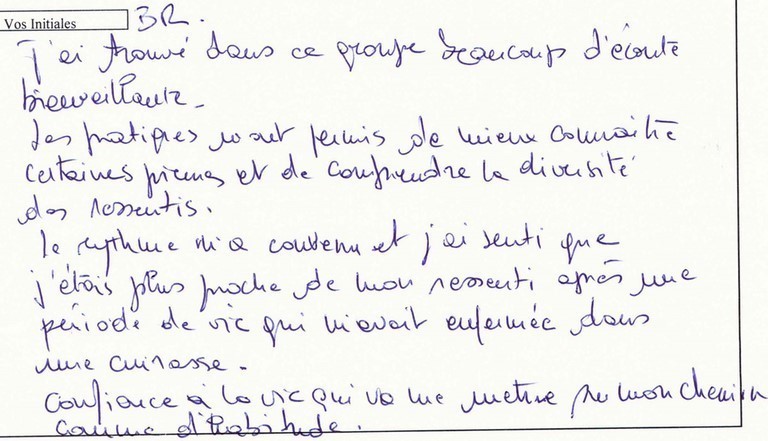 Vos Initiales BR.
j'ai trouvé dans ce groupe beaucoup d'écoute
bienveillante.
Les pratiques m'ont permis de mieux connaître
certaines pierres et de comprendre la diversité
des ressentis.
le rythme m'a convenu et j'ai senti que
j'étais plus proche de mon ressenti après une
période de vie qui m'avait enfermée dans
une cuirasse.
Confiance à la vie qui va me mettre sur mon chemin
comme d'habitude.